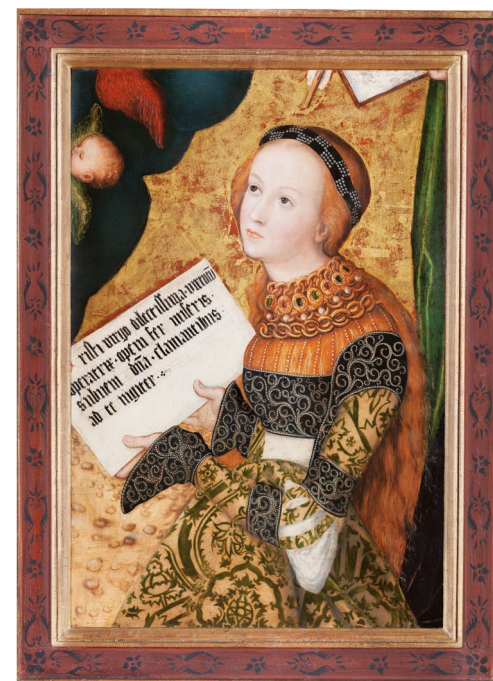 risti virgo dilectissima · virtutū
operatrix · opem fer miseris ·
subueni dña · clamantibus
ad te iugiter ·